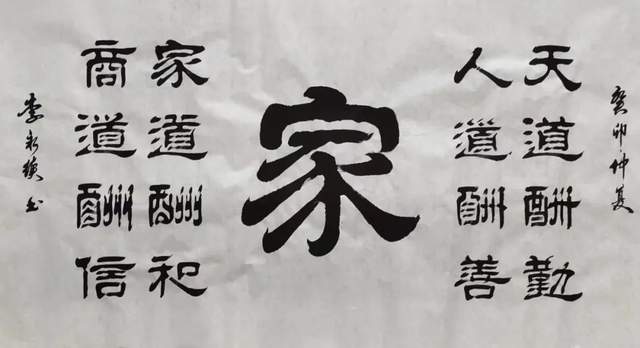 癸卯仲夏
天道酬勤
人道酬善
家
家道酬和
商道酬信
李永书